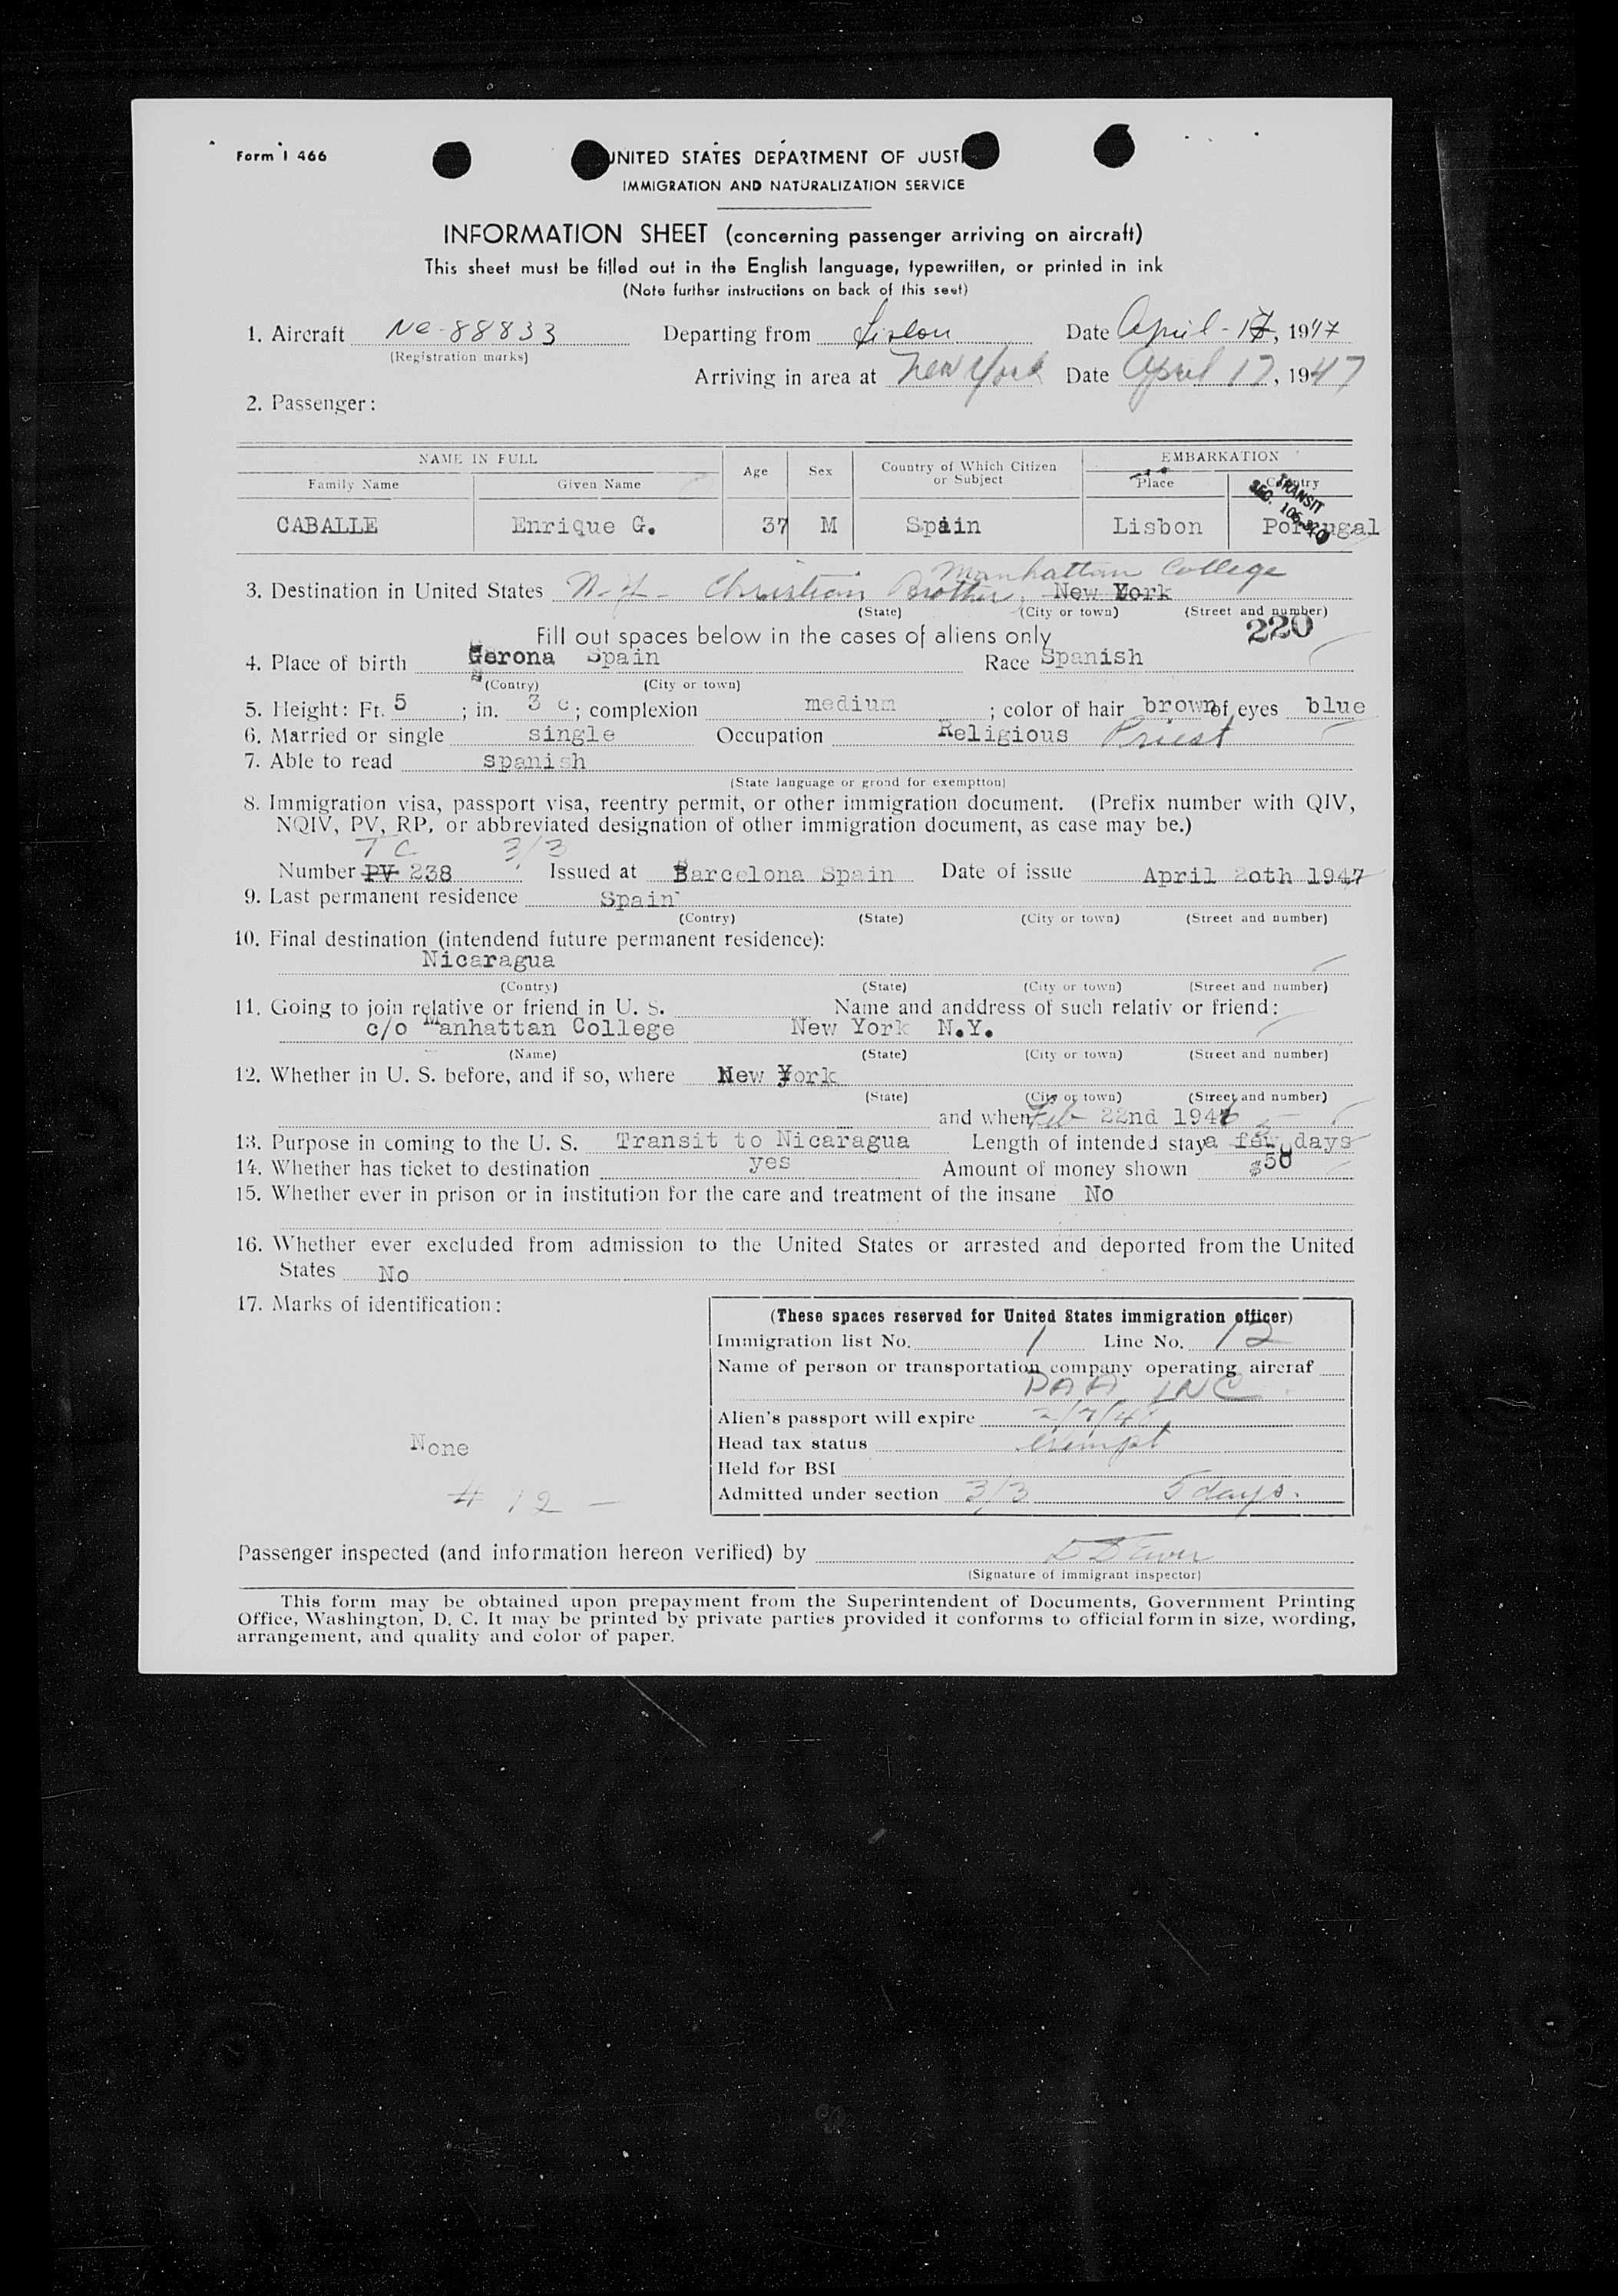 Form I 466
UNITED STATES DEPARTMENT OF JUSTI
IMMIGRATION AND NATURALIZATION SERVICE
INFORMATION SHEET (concerning passenger arriving on aircraft)
This sheet must be filled out in the English language, typewritten, or printed in ink
(Note further instructions on back of this seet)
1. Aircraft NC-88833 Departing from Lisbon Date April - 17, 1947
(Registration marks)
Arriving in area at New York Date April 17, 1947
2. Passenger:
NAME IN FULL Age Sex Country of Which Citizen or Subject EMBARKATION
Family Name Given Name Place Country
TRANSIT
CABALLE Enrique G. 37 M Spain Lisbon Portugal
Manhattan College
3. Destination in United States N.Y. Christian Brother, New York
(State) (City or town) (Street and number)
220
Fill out spaces below in the cases of aliens only
4. Place of birth Gerona Spain Race Spanish
(Contry) (City or town)
5. Height: Ft. 5 ; in. 3 c ; complexion medium ; color of hair brown of eyes blue
6. Married or single single Occupation Religious Priest
7. Able to read spanish
(State language or grond for exemptton)
8. Immigration visa, passport visa, reentry permit, or other immigration document. (Prefix number with QIV,
NQIV, PV, RP, or abbreviated designation of other immigration document, as case may be.)
TC 3/3
Number PV 238 Issued at Barcelona Spain Date of issue April 2oth 1947
9. Last permanent residence Spain
(Contry) (State) (City or town) (Street and number)
10. Final destination (intendend future permanent residence):
Nicaragua
(Contry) (State) (City or town) (Street and number)
11. Going to join relative or friend in U. S. Name and anddress of such relativ or friend:
c/o Manhattan College New York N.Y.
(Name) (State) (City or town) (Street and number)
12. Whether in U. S. before, and if so, where New York
(State) (City or town) (Street and number)
and when Feb 22nd 1946
13. Purpose in coming to the U. S. Transit to Nicaragua Length of intended stay a few days
14. Whether has ticket to destination yes Amount of money shown $50
15. Whether ever in prison or in institution for the care and treatment of the insane No
16. Whether ever excluded from admission to the United States or arrested and deported from the United
States No
17. Marks of identification:
None
# 12 —
(These spaces reserved for United States immigration officer)
Immigration list No. 1 Line No. 12
Name of person or transportation company operating aircraf
PAA INC
Alien's passport will expire 2/7/48
Head tax status exempt
Held for BSI
Admitted under section 3/3 5 days.
Passenger inspected (and information hereon verified) by
(Signature of immigrant inspector)
This form may be obtained upon prepayment from the Superintendent of Documents, Government Printing
Office, Washington, D. C. It may be printed by private parties provided it conforms to official form in size, wording,
arrangement, and quality and color of paper.